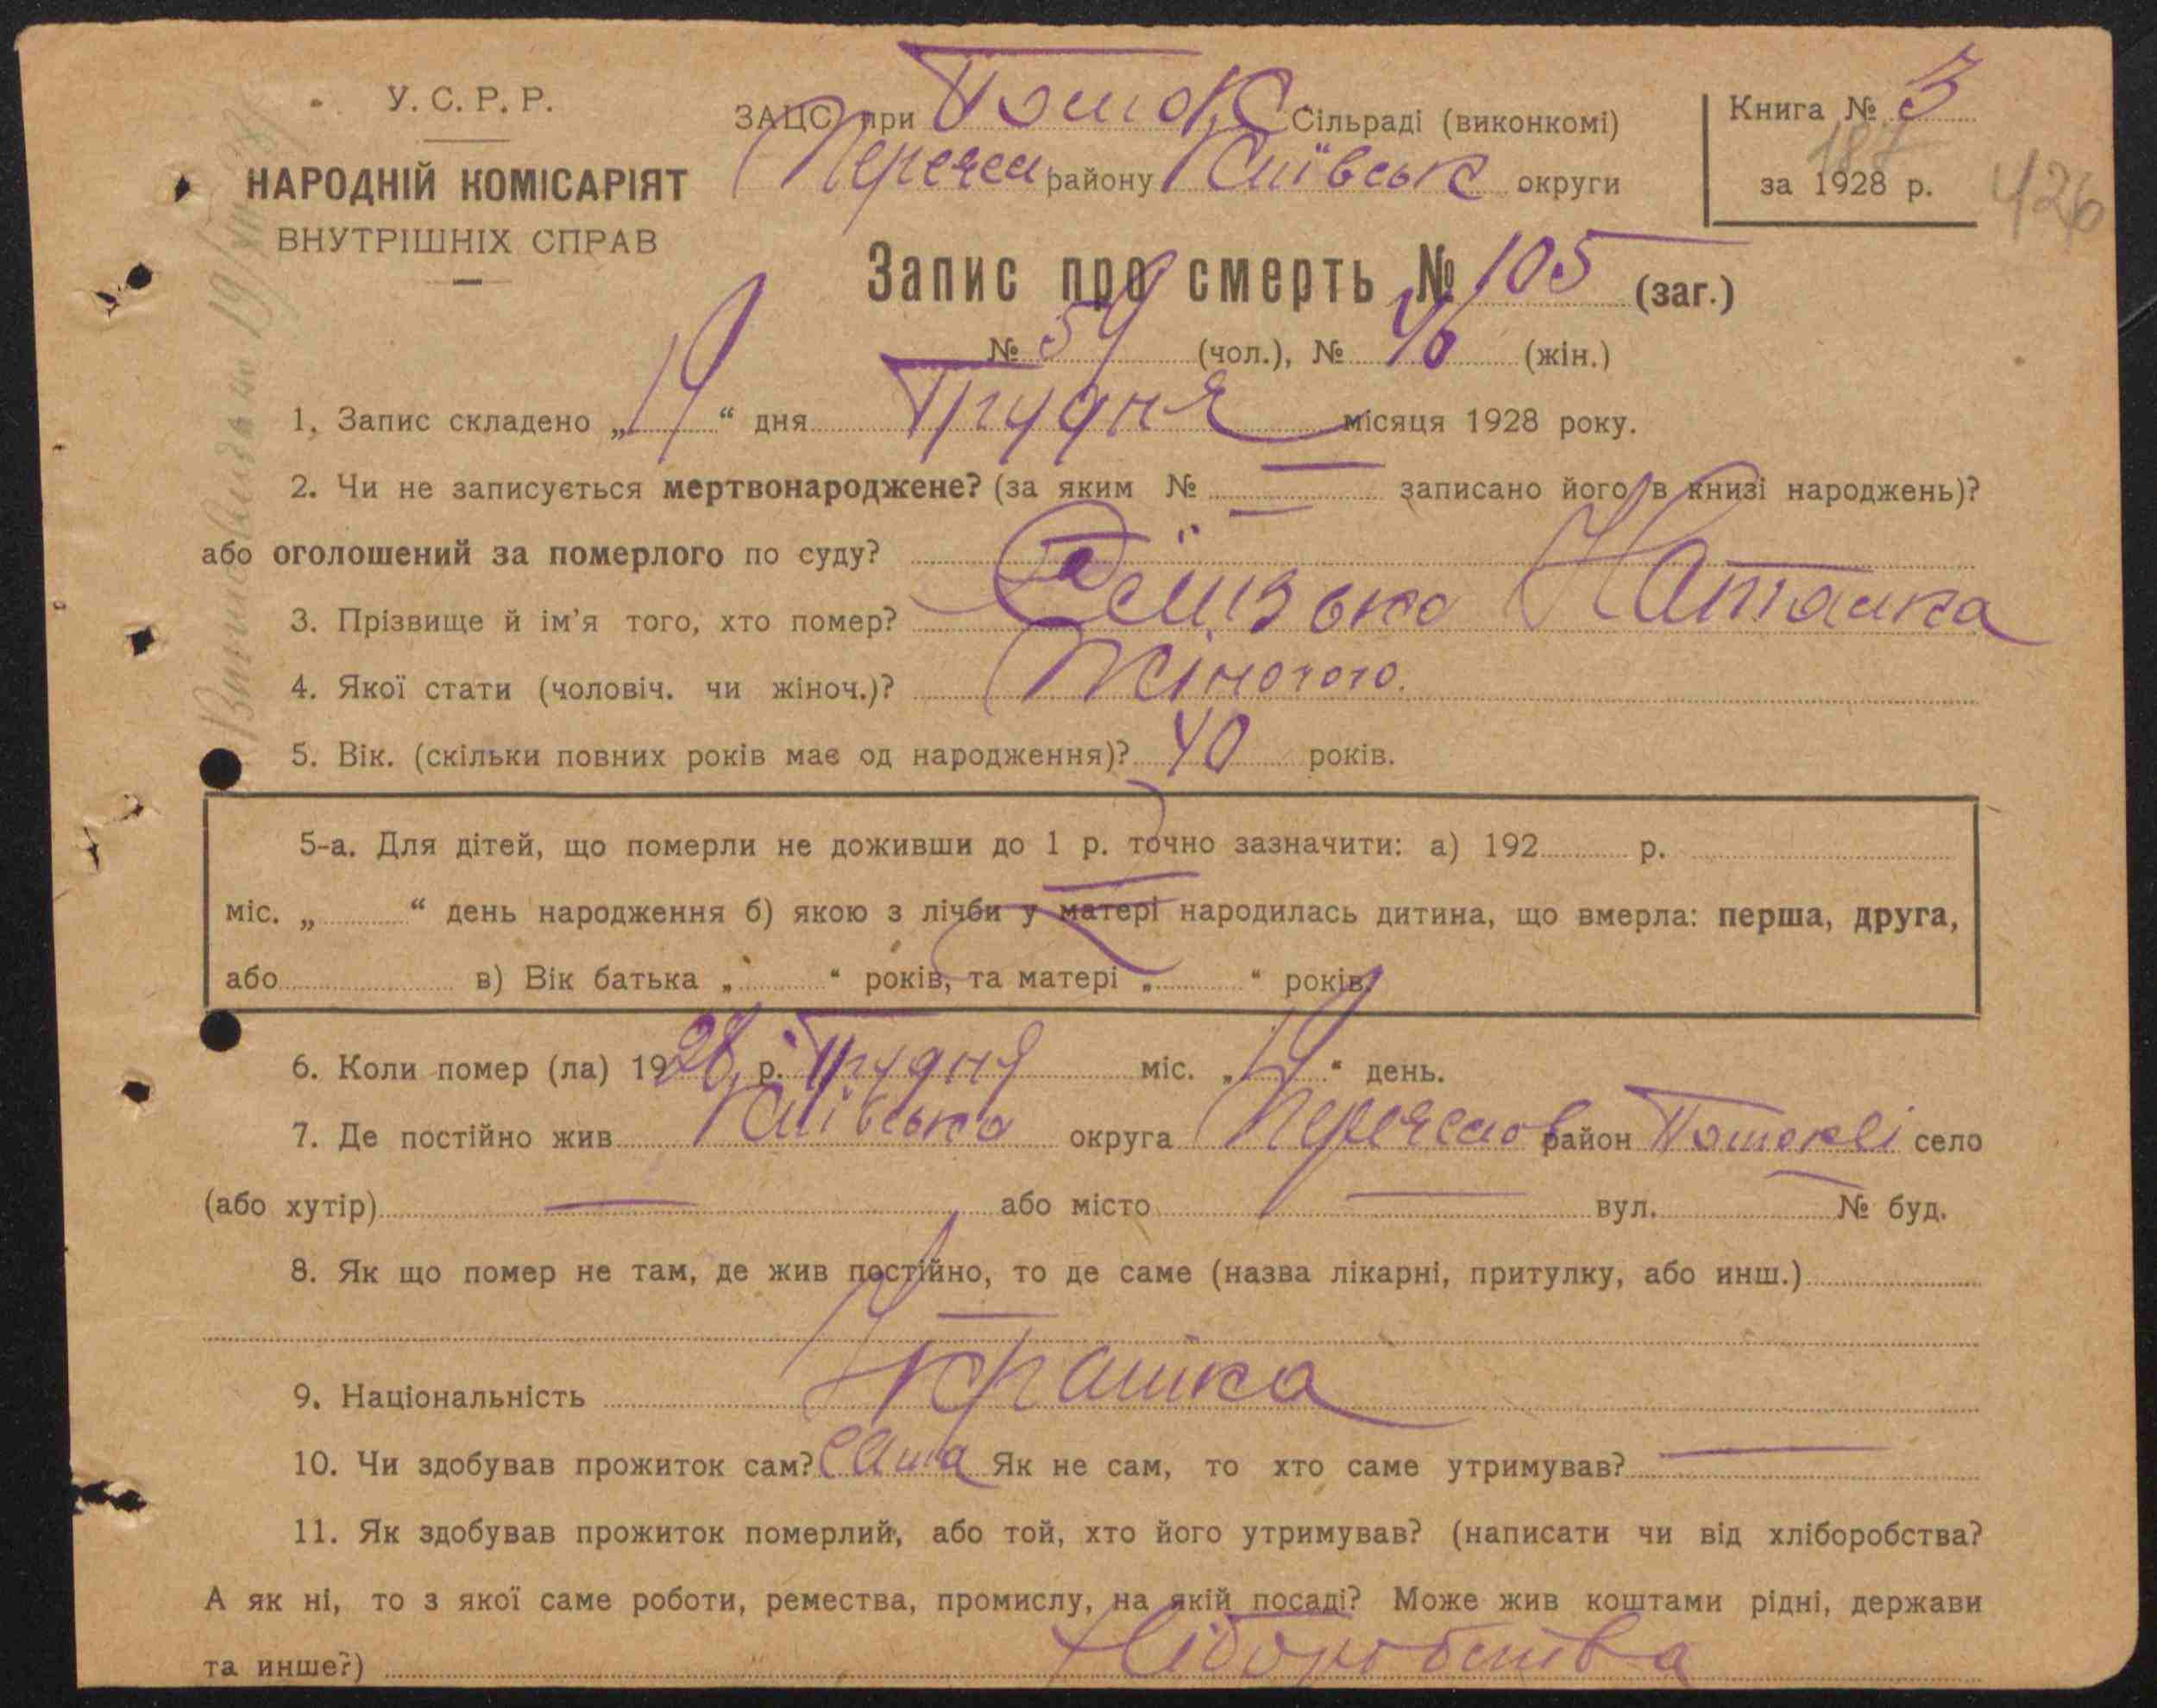 У. С. Р. Р.
НАРОДНІЙ КОМІСАРІЯТ
ВНУТРІШНІХ СПРАВ
ЗАЦС при Поток Сільраді (виконкомі)
району Київськ округи
Книга № 3
187
за 1928 р.
426
Запис про смерть № 105 (заг.)
№ 59 (чол.), № 46 (жін.)
1. Запис складено „19“ дня Грудня місяця 1928 року.
2. Чи не записується мертвонароджене? (за яким № — записано його в книзі народжень)?
або оголошений за померлого по суду?
3. Прізвище й ім'я того, хто помер? Наталка
4. Якої стати (чоловіч. чи жіноч.)? Жіночого.
5. Вік. (скільки повних років має од народження)? 40 років.
5-а. Для дітей, що померли не доживши до 1 р. точно зазначити: а) 192 р.
міс. „ “ день народження б) якою з лічби у матері народилась дитина, що вмерла: перша, друга,
або в) Вік батька „ “ років, та матері „ “ років.
6. Коли помер (ла) 1928 р. Грудня міс. „19“ день.
7. Де постійно жив Київська округа район село
(або хутір) — або місто — вул. № буд.
8. Як що помер не там, де жив постійно, то де саме (назва лікарні, притулку, або инш.)
9. Національність Украінка
10. Чи здобував прожиток сам? Сама Як не сам, то хто саме утримував? —
11. Як здобував прожиток померлий, або той, хто його утримував? (написати чи від хліборобства?
А як ні, то з якої саме роботи, ремества, промислу, на якій посаді? Може жив коштами рідні, держави
та инше?) Хліборобства